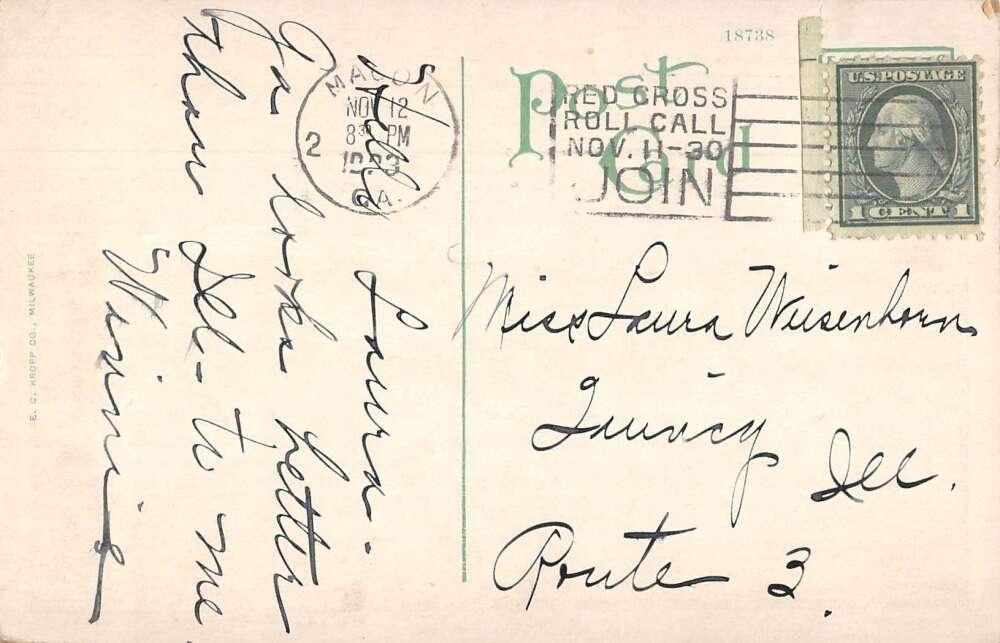 18738
Post
Card
MACON
NOV 12
8 30 PM
1923
GA.
2
RED CROSS
ROLL CALL
NOV. 11-30
JOIN
U.S. POSTAGE
1 CENT 1
Hello Laura-
Ga looks better
than Ill- to me
Winnie
Miss Laura Weisenhorn
Quincy
Ill.
Route 3.
E. C. KROPP CO., MILWAUKEE